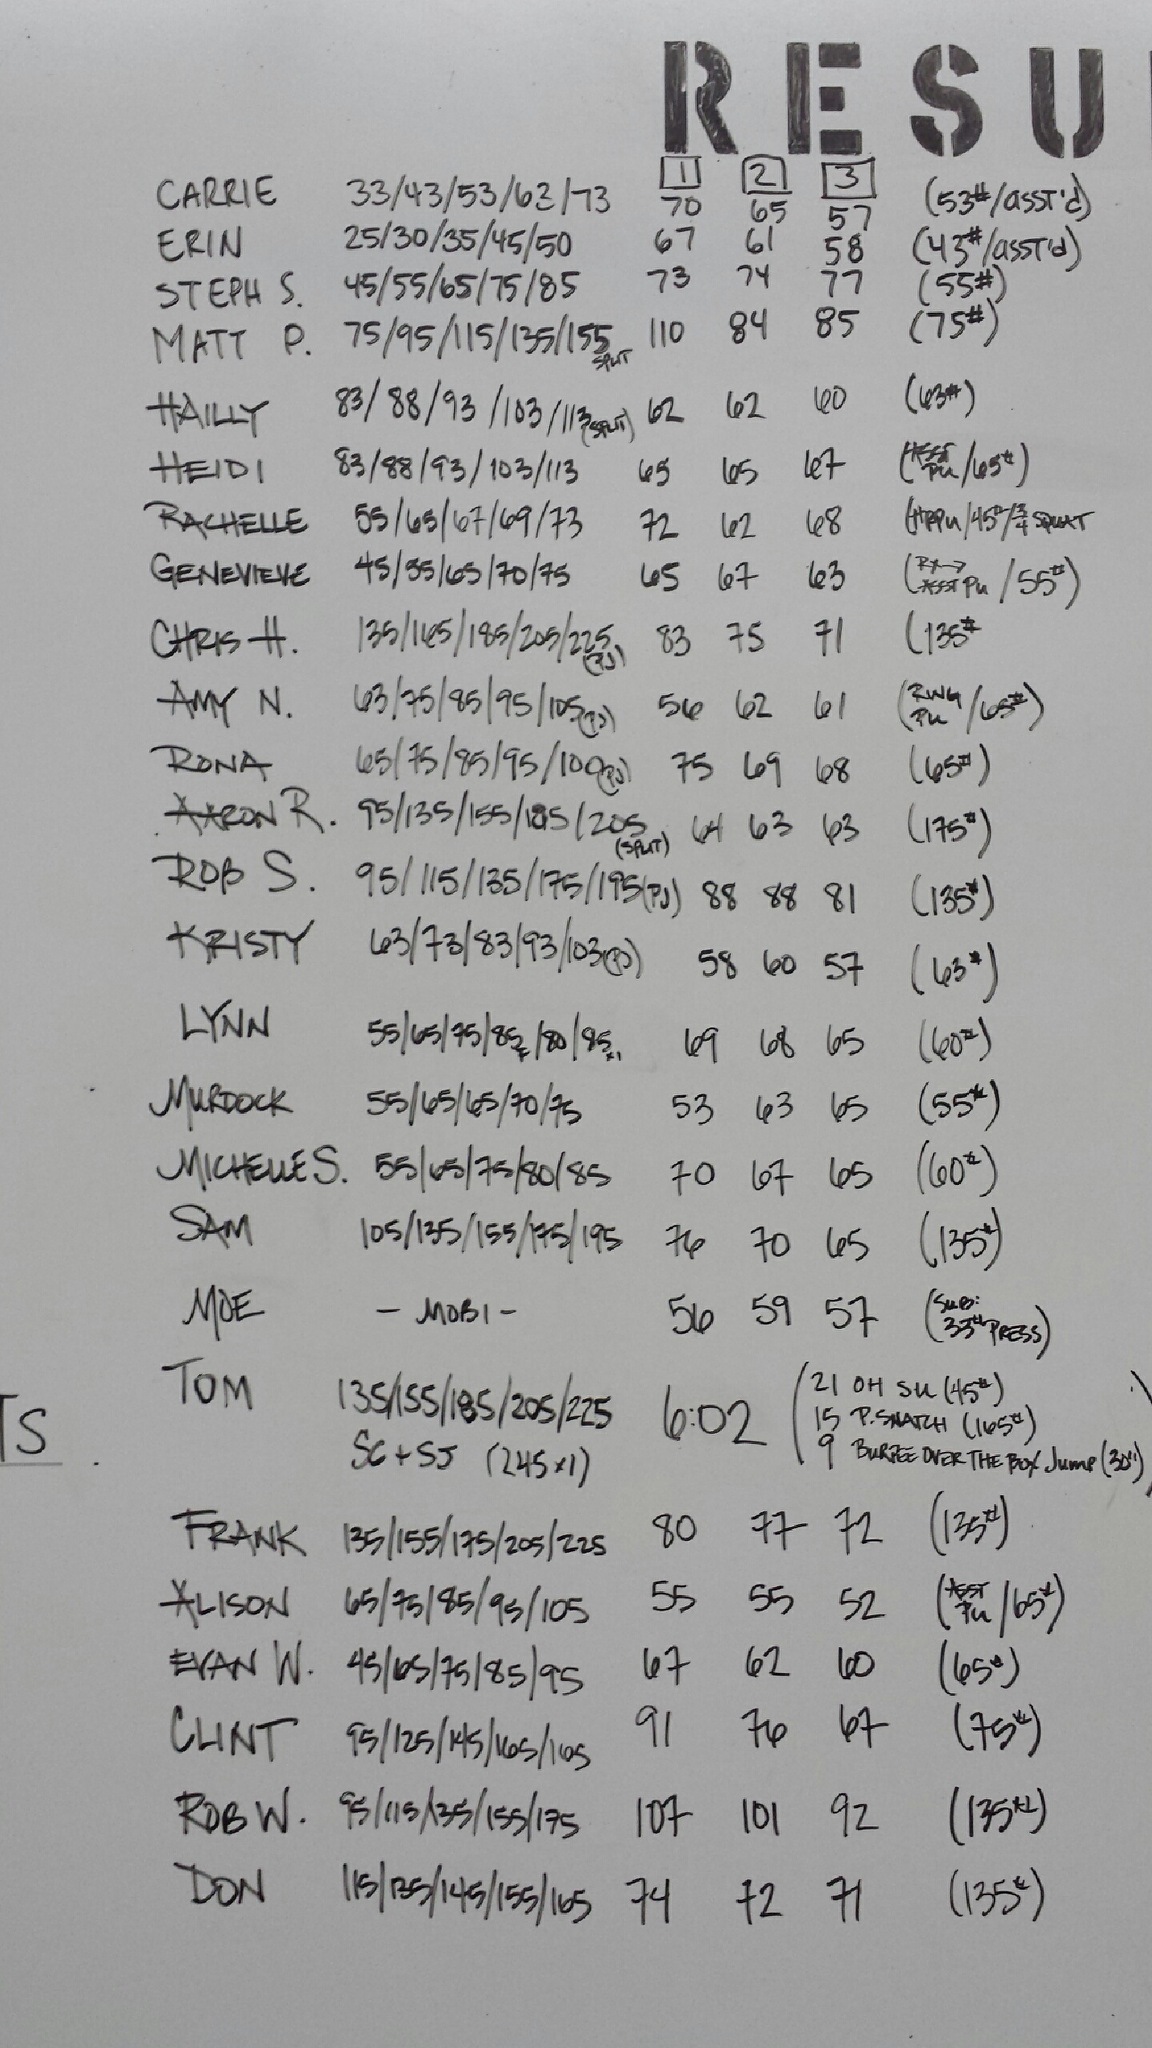 RESU
1 2 3
CARRIE 33/43/53/63/73 70 65 57 (53#/asst'd)
ERIN 25/30/35/45/50 67 61 58 (43#/asst'd)
STEPH S. 45/55/65/75/85 73 74 77 (55#)
MATT P. 75/95/115/135/155 SPLIT 110 84 85 (75#)
HAILLY 83/88/93/103/113 (SPLIT) 62 62 60 (63#)
HEIDI 83/88/93/103/113 65 65 67 (ASST PU/65#)
RACHELLE 55/65/67/69/73 72 62 68 /45#/3/4 SQUAT
GENEVIEVE 45/55/65/70/75 65 67 63 (RX→ ASST PU/55#)
CHRIS H. 135/165/185/205/225 (PJ) 83 75 71 (135#
AMY N. 63/75/85/95/105 (PJ) 56 62 61 (RING PU/65#)
RONA 65/75/85/95/100 (PJ) 75 69 68 (65#)
AARON R. 95/135/155/185/205 (SPLIT) 64 63 63 (175#)
ROB S. 95/115/135/175/195 (PJ) 88 88 81 (135#)
KRISTY 63/73/83/93/103 (PJ) 58 60 57 (63#)
LYNN 55/65/75/85/80/85 x1 69 68 65 (60#)
MURDOCK 55/65/65/70/75 53 63 65 (55#)
MICHELLE S. 55/65/75/80/85 70 67 65 (60#)
SAM 105/135/155/175/195 76 70 65 (135#)
MOE - MOBI - 56 59 57 (SUB: 35# PRESS)
TOM 135/155/185/205/225 6:02 (21 OH SU (45#)
SC + SJ (245x1) 15 P. SNATCH (165#)
9 BURPEE OVER THE BOX JUMP (30"))
TS
FRANK 135/155/175/205/225 80 77 72 (135#)
ALISON 65/75/85/95/105 55 55 52 (ASST PU/65#)
EVAN W. 45/65/75/85/95 67 62 60 (65#)
CLINT 95/125/145/165/165 91 76 67 (75#)
ROB W. 95/115/135/155/175 107 101 92 (135#)
DON 115/135/145/155/165 74 72 71 (135#)